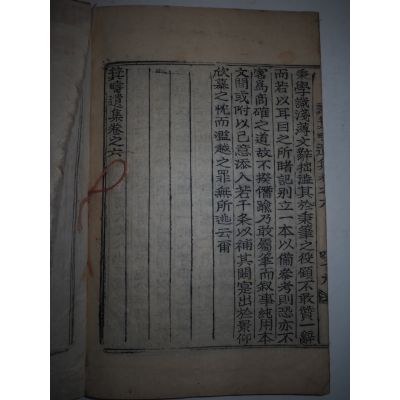 秉學識淺薄文辭拙澁其於秉筆之役顧不敢贊一辭
而若以耳目之所睹記別立一本以備參考則恐亦不
害爲商確之道故不揆僭踰乃敢屬筆而敍事純用本
文間或附以己意添入若干条以補其闕寔出於景仰
欣慕之忱而濫越之罪無所逃云爾
疇遺集卷之六